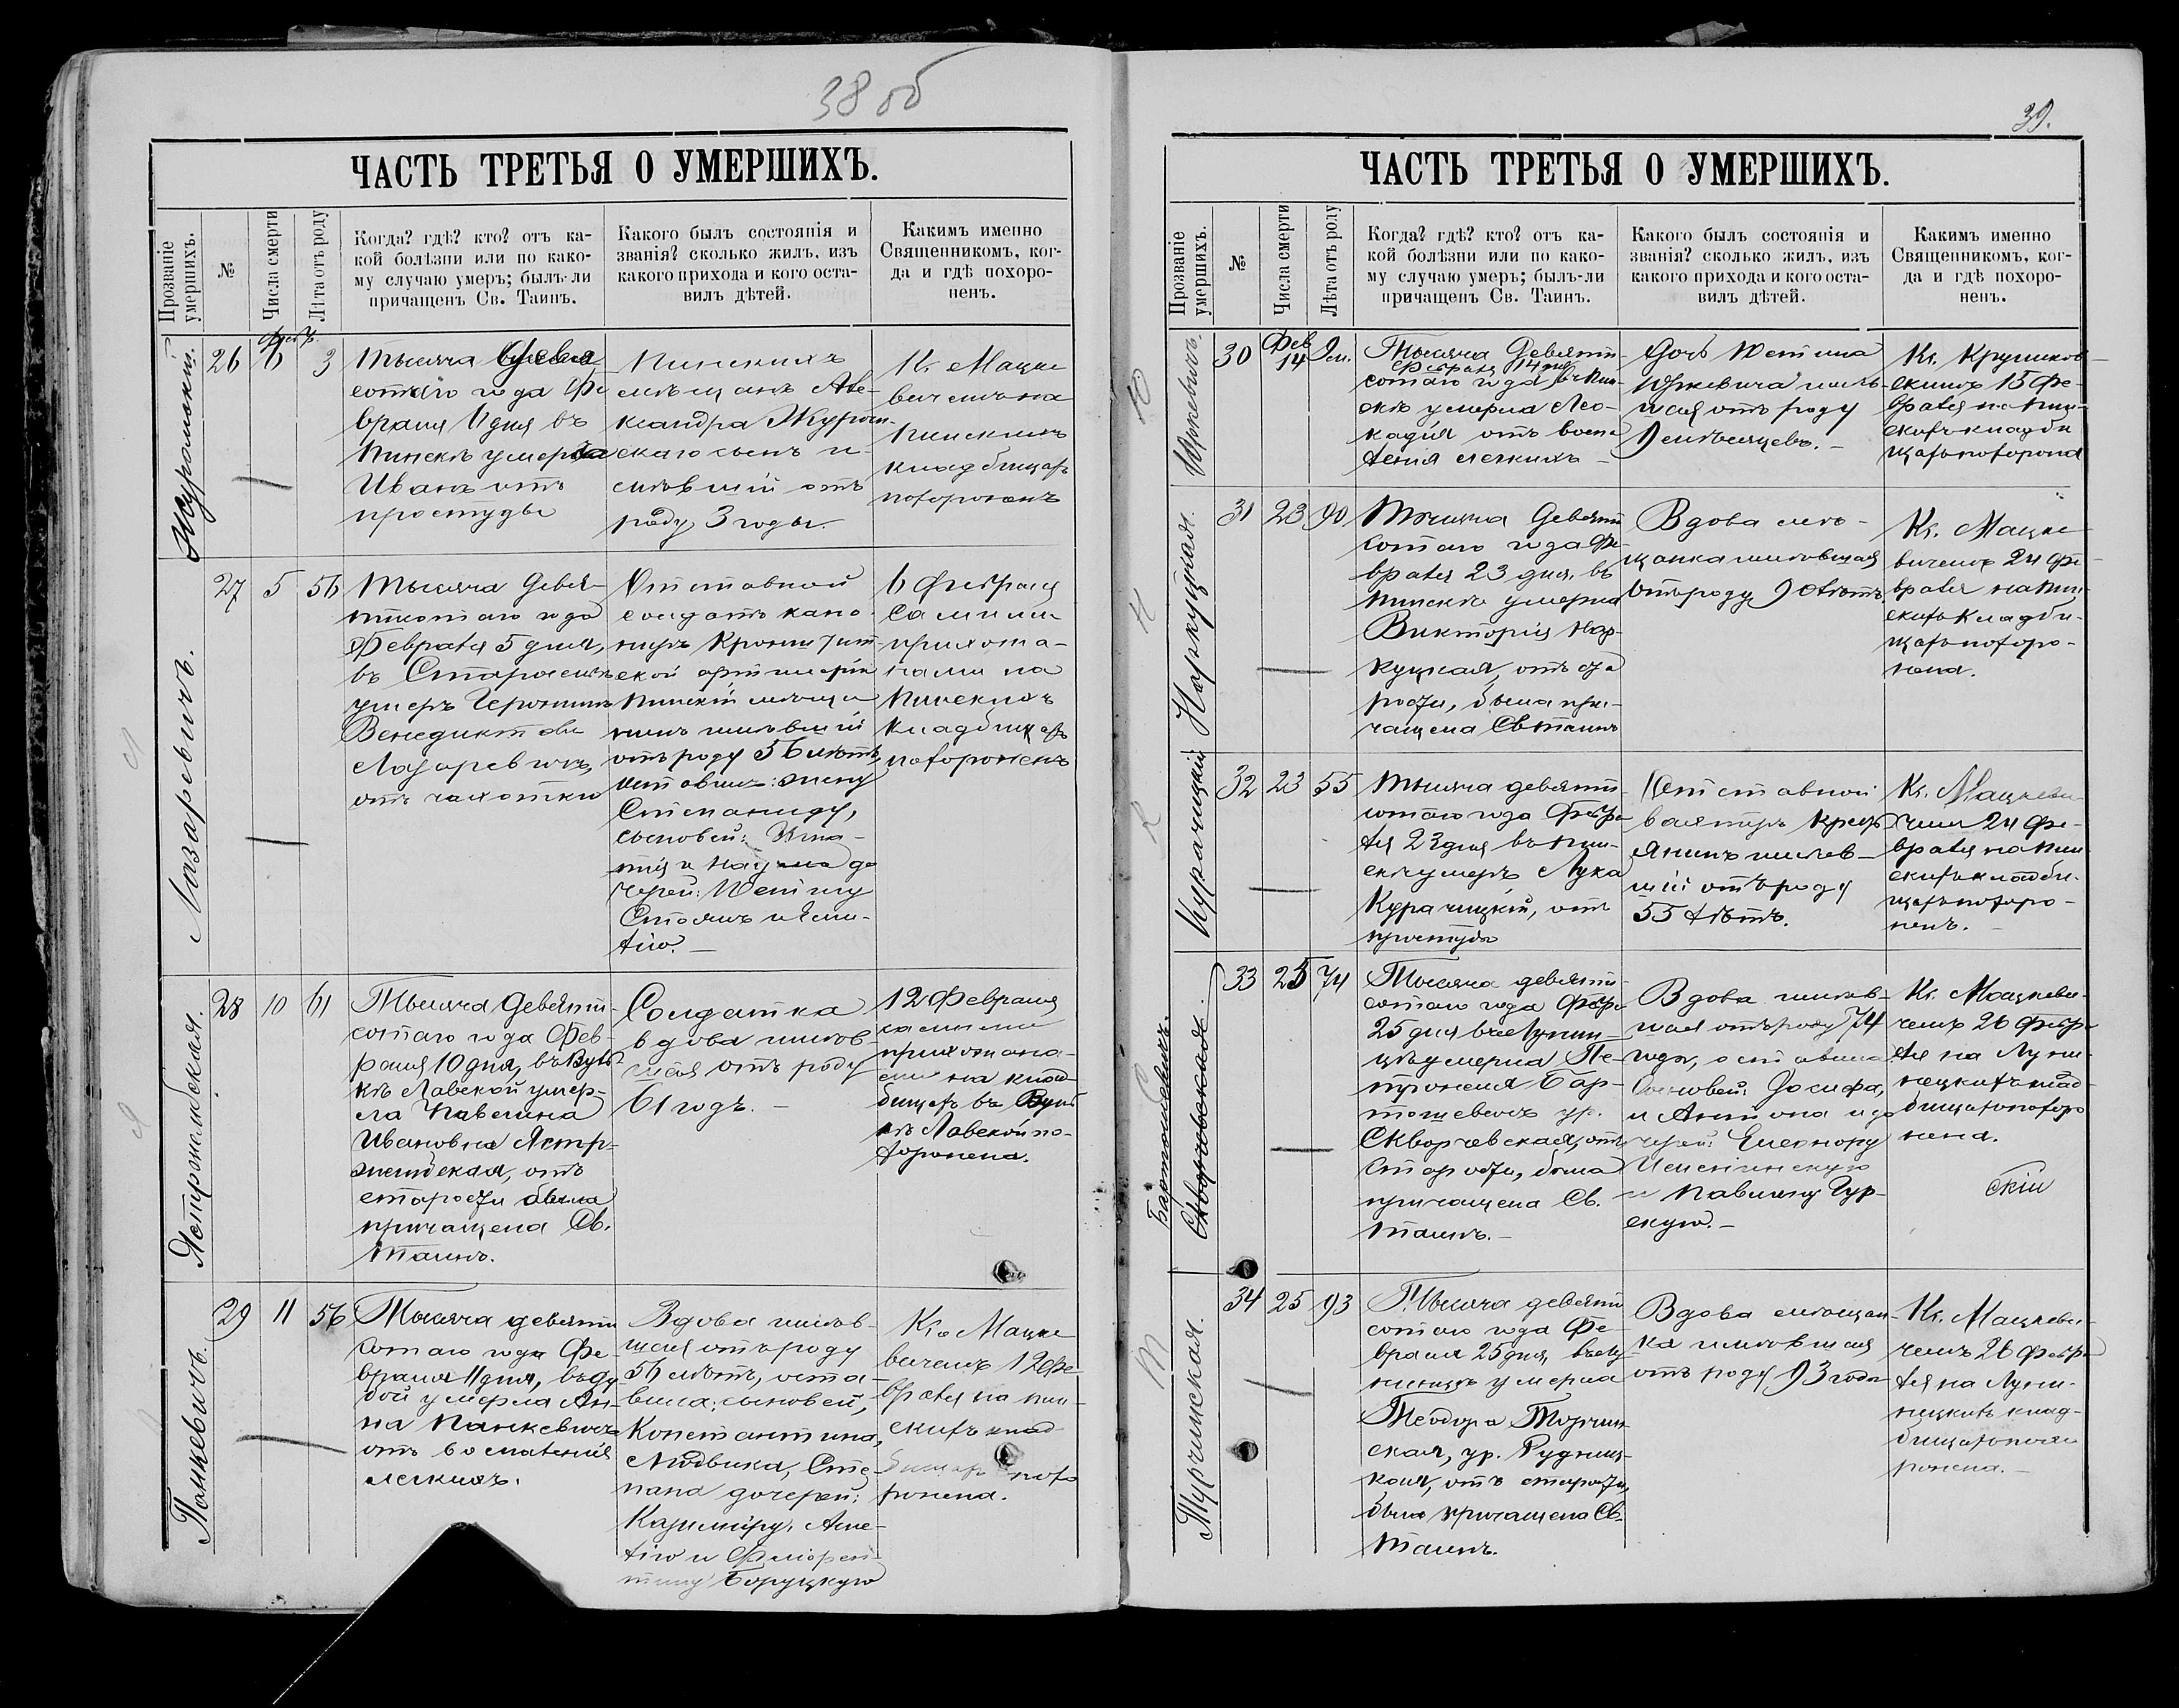 38 об
ЧАСТЬ ТРЕТЬЯ О УМЕРШИХЪ.
Прозваніе умершихъ.
№
Числа смерти
Лѣта отъ роду
Когда? гдѣ? кто? отъ ка-
кой болѣзни или по како-
му случаю умеръ; былъ-ли
причащенъ Св. Таинъ.
Какого былъ состоянія и
званія? сколько жилъ, изъ
какого прихода и кого оста-
вилъ дѣтей.
Каким именно
Священникомъ, ког-
да и гдѣ похоро-
ненъ.
26
3
Тысяча
сотаго года Фе
враля 11 дня въ
Пинскѣ умеръ
Иванъ отъ
простуды
Пинскихъ
мѣщанъ Але-
ксандра
скаго сынъ и
мѣвшій отъ
роду 3 годы.
Кс. Мацке
вичемъ на
Пинскихъ
кладбищахъ
похороненъ
Лазаревичъ.
27
5
56
Тысяча девя-
тисотаго года
Февраля 5 дня,
въ
умеръ Іеронимъ
Венедиктовъ
Лазаревичъ,
отъ чахотки
Отставной
солдатъ кано-
ниръ Кронштат-
ской артилеріи
Пинскій мѣща
нинъ имѣвшій
отъ роду 56 лѣтъ,
оставилъ: жену
Степаниду,
сыновей: Игна-
тія и
черей: Юстину
и Эми-
лію. —
6 Февраля
самими
прихожа-
нами на
Пинскихъ
кладбищахъ
похороненъ
Ястржембская.
28
10
61
Тысяча девяти-
сотаго года Фев-
раля 10 дня, въ
Лавской умер-
ла Павелина
Ивановна Ястр-
жембская, отъ
старости была
причащена Св.
Таинъ.
Солдатка
вдова имѣв-
шая отъ роду
61 годъ. —
12 Февраля
самими
прихожана-
ми на клад-
бищахъ въ
Лавской по-
хоронена.
Панкевичъ.
29
11
56
Тысяча девяти
сотаго года Фе-
враля 11 дня, въ Ду
бой умерла Ан-
на Панкевичъ
отъ воспаленія
легкихъ.
Вдова имѣв-
шая отъ роду
56 лѣтъ, оста-
вила: сыновей,
Константина,
Людвика, Сте-
пана дочерей:
Казимиру, Аме-
лію и Флорен-
тину Боруцкую
Кс. Мацке
вичемъ 12 Фе
враля на пин-
скихъ клад-
похо
ронена.
39.
ЧАСТЬ ТРЕТЬЯ О УМЕРШИХЪ.
Прозваніе умершихъ.
№
Числа смерти
Лѣта отъ роду
Когда? гдѣ? кто? отъ ка-
кой болѣзни или по како-
му случаю умеръ; былъ-ли
причащенъ Св. Таинъ.
Какого былъ состоянія и
званія? сколько жилъ, изъ
какого прихода и кого оста-
вилъ дѣтей.
Какимъ именно
Священникомъ, ког-
да и гдѣ похоро-
ненъ.
Юркевичъ.
30
Фев
14
9 м.
Тысяча Девяти-
Февраля 14 дня
сотаго года въ Пин-
скѣ умерла Лео-
кадія отъ воспа
ленія легкихъ —
Дочь Юстина
Юркевича имѣв-
шая отъ роду
9 мѣсяцевъ. —
Кс. Круликов-
скимъ 15 Фе-
враля на Пин-
скихъ кладби
щахъ похорона
Наркуцкая.
31
23
90
Тысяча Девяти
сотаго года Фе-
враля 23 дня, въ
Пинскѣ умерла
Викторія Нар-
куцкая, отъ ста
рости, была при-
чащена Св. таинъ
Вдова мѣ-
щанка имѣвшая
отъ роду 90 лѣтъ.
Кс. Мацке
вичемъ 24 Фе-
враля на Пин-
скихъ кладби-
щахъ похоро-
нена.
Курачицкій
32
23
55
Тысяча девяти-
сотаго года Февра
ля 23 дня въ Пин-
скѣ умеръ Лука
Курачицкій, отъ
простуды
Отставной
вахтеръ крест
янинъ имѣв-
шій отъ роду
55 лѣтъ.
Кс. Мацкеви-
чемъ 24 Фе-
враля на Пин
скихъ кладби-
щахъ похоро-
ненъ.
Бартошевичъ.
Скворчевская.
33
25
74
Тысяча девяти-
сотаго года Февр
25 дня въ Лунин-
цѣ умерла Пе-
тронеля Бар-
тошевичъ ур.
Скворчевская, отъ
старости, была
причащена Св.
Таинъ. —
Вдова имѣв-
шая отъ роду 74
года, оставила
сыновей: Іосифа,
и Антона и до
черей: Елеонору
и Павлину Гур-
скую. —
Кс. Мацкеви-
чемъ 26 Февра
ля на Луни-
нецкихъ клад-
бищахъ похоро
нена.
скій
Турчинская.
34
25
93
Тысяча девяти
сотаго года Фе-
враля 25 дня, въ Лу
нинцѣ умерла
Теодора Турчин
ская, ур. Рудниц-
кая, отъ старости,
была причащена Св.
Таинъ.
Вдова мѣщан-
ка имѣвшая
отъ роду 93 года
Кс. Мацкеви-
чемъ 26 Февра
ля на Луни-
нецкихъ клад-
бищахъ похо
ронена. —